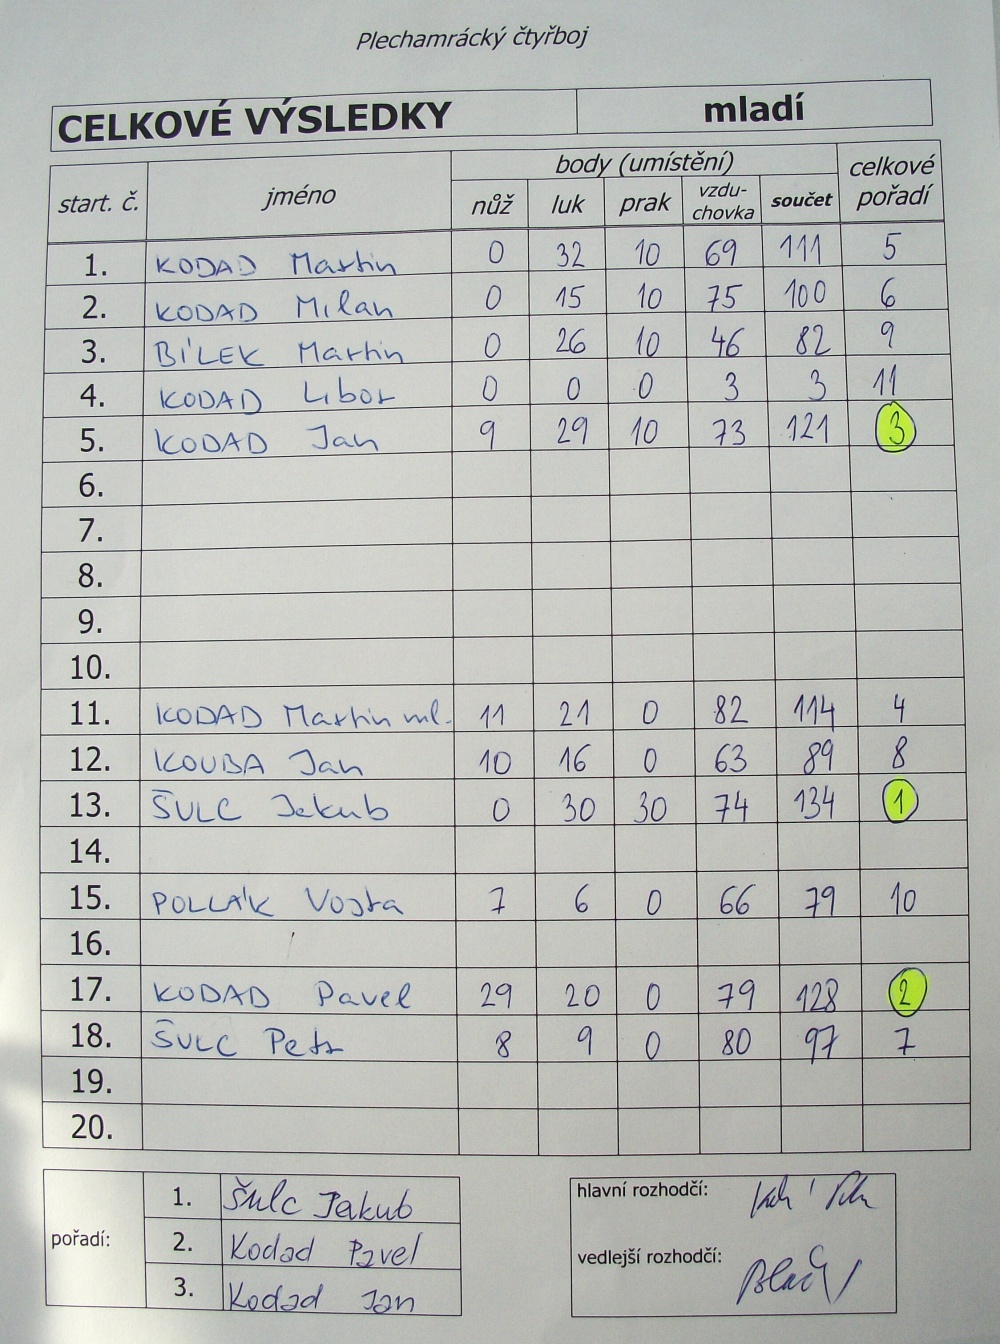 Plechamrácký čtyřboj
CELKOVÉ VÝSLEDKY mladí
start. č. jméno body (umístění) celkové pořadí
nůž luk prak vzdu-chovka součet
1. KODAD Martin 0 32 10 69 111 5
2. KODAD Milan 0 15 10 75 100 6
3. BÍLEK Martin 0 26 10 46 82 9
4. KODAD Libor 0 0 0 3 3 11
5. KODAD Jan 9 29 10 73 121 3
6.
7.
8.
9.
10.
11. KODAD Martin ml. 11 21 0 82 114 4
12. KOUBA Jan 10 16 0 63 89 8
13. ŠULC Jakub 0 30 30 74 134 1
14.
15. POLLÁK Vojta 7 6 0 66 79 10
16.
17. KODAD Pavel 29 20 0 79 128 2
18. ŠULC Petr 8 9 0 80 97 7
19.
20.
pořadí:
1. Šulc Jakub
2. Kodad Pavel
3. Kodad Jan
hlavní rozhodčí:
vedlejší rozhodčí: